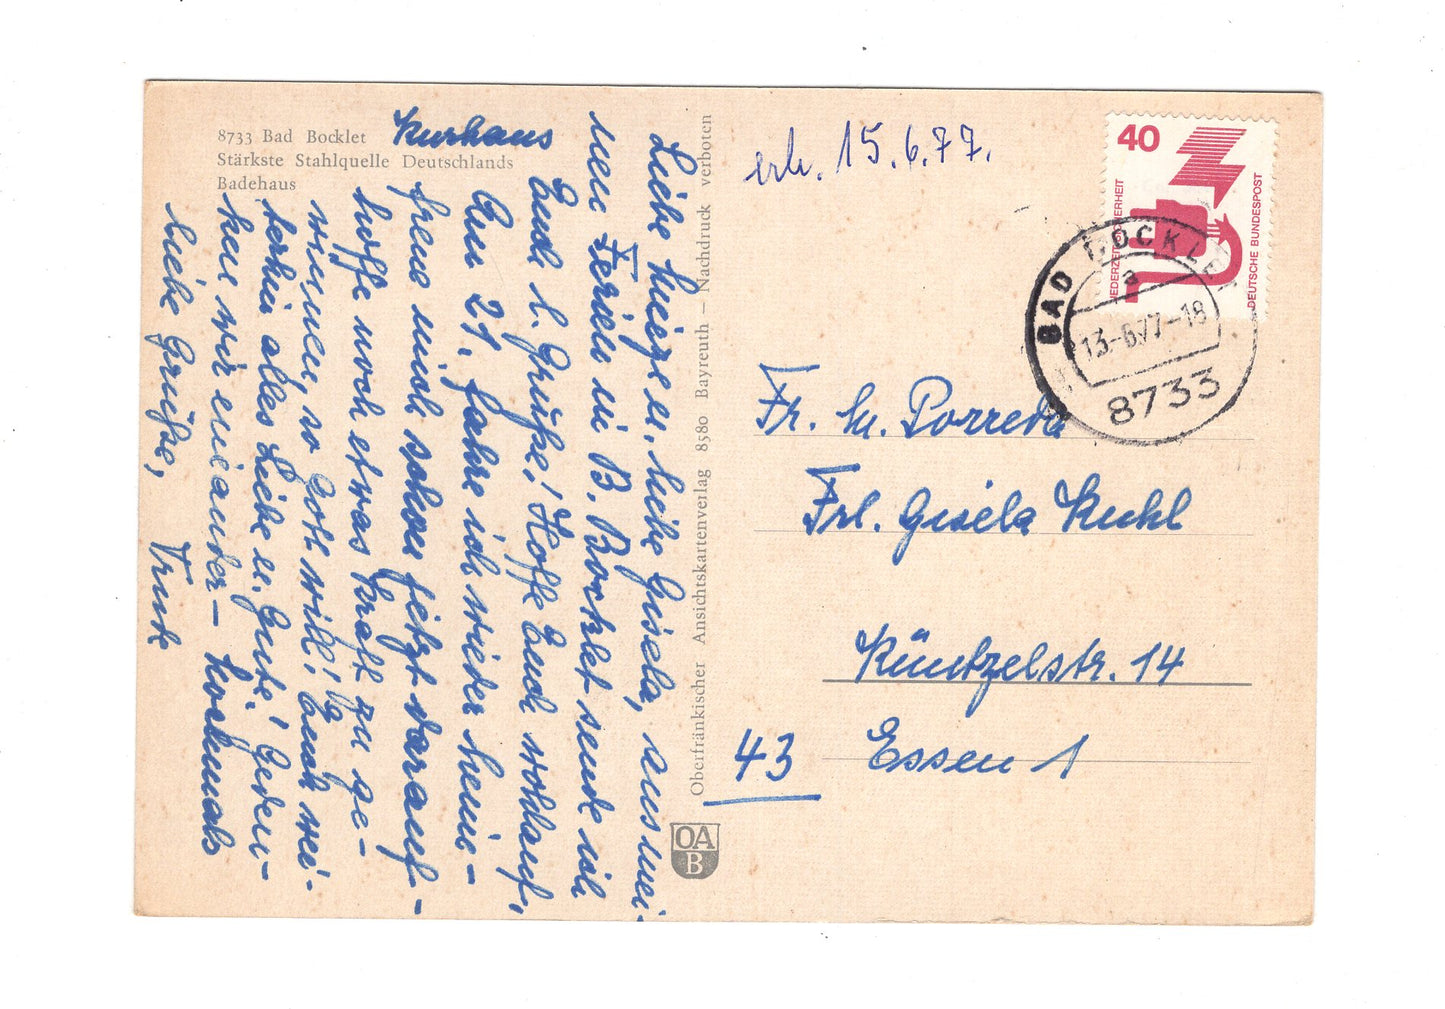 8733 Bad Bocklet Kurhaus
Stärkste Stahlquelle Deutschlands
Badehaus
Liebe Luize u. liebe Gisela, aus mei-
nen Ferien in B. Bocklet sende ich
Euch l. Grüße! Hoffe Euch wohlauf,
Am 21. fahre ich wieder heim-
freue mich schon jetzt darauf-
hoffe noch etwas Kraft zu ge-
winnen, so Gott will! Euch wei-
terhin alles Liebe u. Gute! Geden-
ken wir einander- hochmals
liebe Grüße, Trude
Oberfränkischer Ansichtskartenverlag 8580 Bayreuth – Nachdruck verboten
OA
B
erh. 15.6.77.
40
JEDERZEIT SICHERHEIT
DEUTSCHE BUNDESPOST
BAD BOCKLET
a
13-6.77-18
8733
Fr. M. Porreda
Frl. Gisela Kuhl
Küntzelstr. 14
43 Essen 1